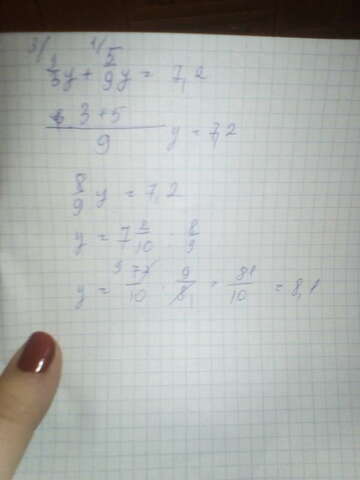 3/ 1/
1/3 y + 5/9 y = 7,2
3+5/9 y = 7,2
8/9 y = 7,2
y = 7 2/10 : 8/9
y = 72/10 · 9/8 = 81/10 = 8,1